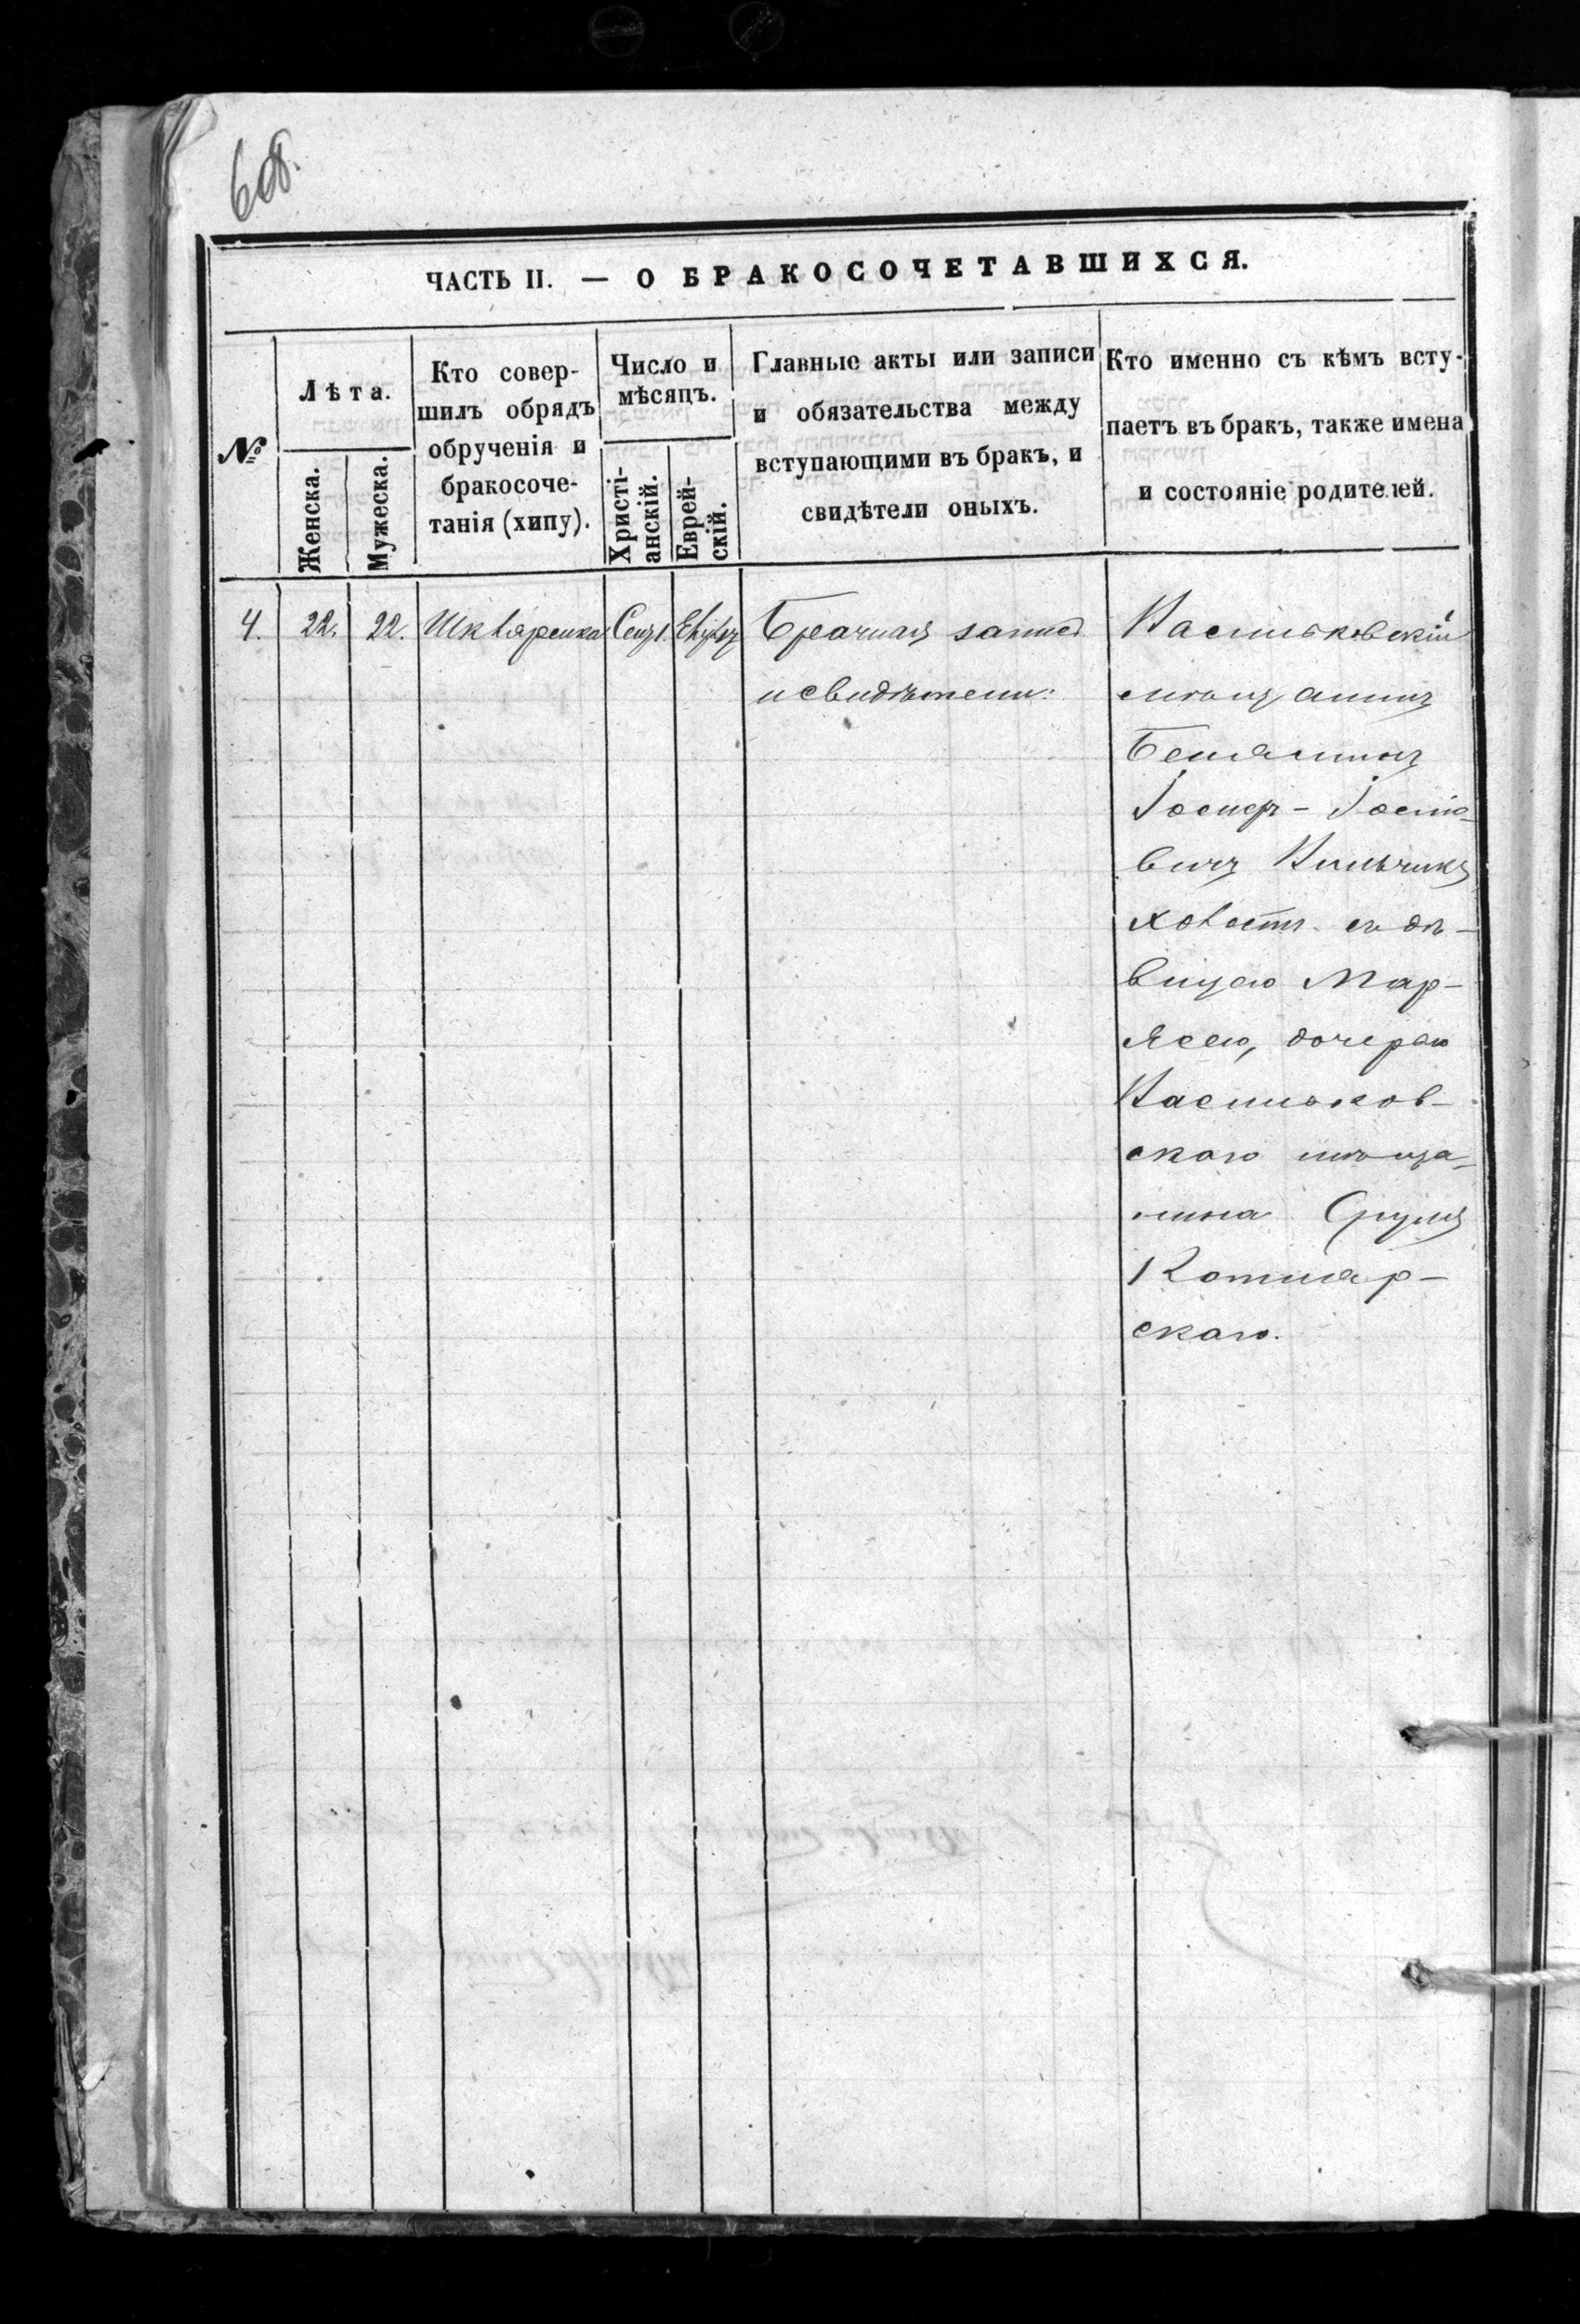 ЧАСТЬ II. — О БРАКОСОЧЕТАВШИХСЯ.
№
Лѣта.
Женска.
Мужеска.
Кто совер-
шилъ обрядъ
обрученія и
бракосоче-
танія (хипу).
Число и
мѣсяцъ.
Христі-
анскій.
Еврей-
скій.
Главные акты или записи
и обязательства между
вступающими въ бракъ, и
свидѣтели оныхъ.
Кто именно съ кѣмъ всту-
паетъ въ бракъ, также имена
и состояніе родителей.
4. 22. 22. Шкляревка
Брачная запись
и свидѣтели:
Васильковскій
мѣщанинъ
Беньяминъ
Іосифъ-Іосіо-
вичъ Вильчикъ
холостъ съ дѣ-
вицею Мар-
ясею, дочерью
Васильков-
скаго мѣща-
нина Сруля
Котляр-
скаго.